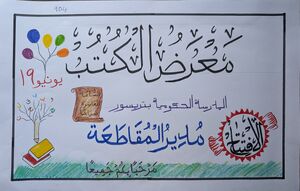 904
معرض الكتب
١٩ يونيو
المدرسة الحكومية بتريسور
الافتتاح
مدير المقاطعة
مرحبا بكم جميعا